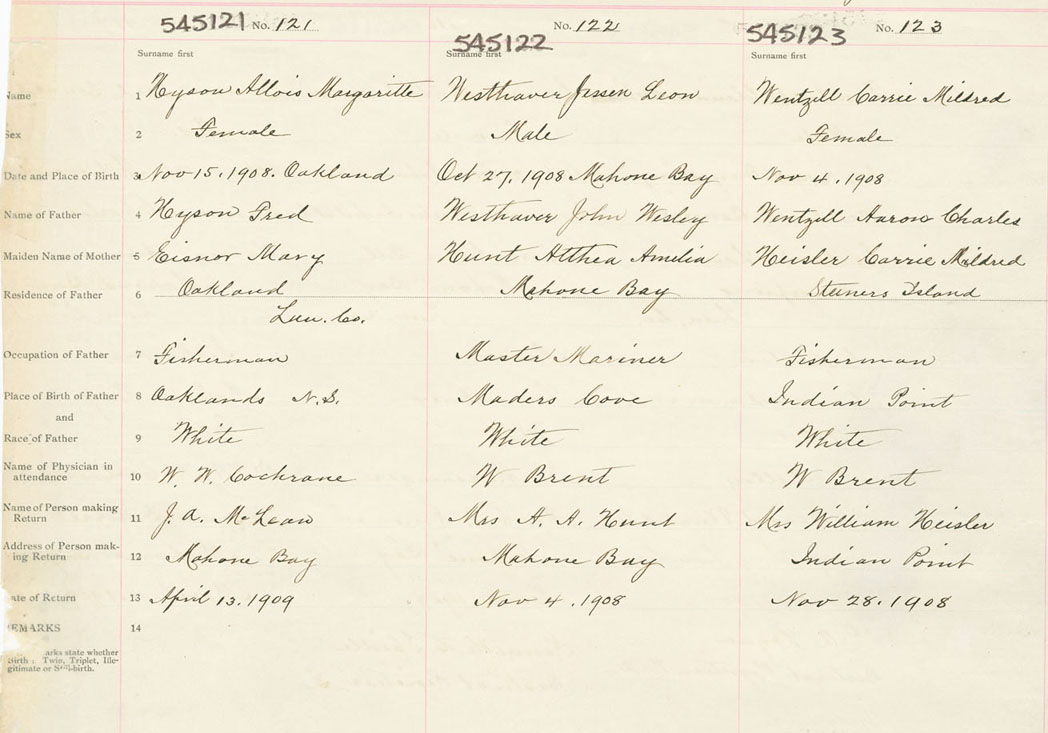 545121 No. 121 545122 No. 122 545123 No. 123
Surname first Surname first Surname first
Name 1 Hyson Allois Margaritte Westhaver Jessen Leon Wentzell Carrie Mildred
Sex 2 Female Male Female
Date and Place of Birth 3 Nov 15. 1908. Oakland Oct 27, 1908 Mahone Bay Nov 4. 1908
Name of Father 4 Hyson Fred Westhaver John Wesley Wentzell Aaron Charles
Maiden Name of Mother 5 Eisnor Mary Hunt Althea Amelia Heisler Carrie Mildred
Residence of Father 6 Oakland Mahone Bay Steiners Island
Lun. Co.
Occupation of Father 7 Fisherman Master Mariner Fisherman
Place of Birth of Father 8 Oaklands N.S. Maders Cove Indian Point
and
Race of Father 9 White White White
Name of Physician in
attendance 10 W. W. Cochrane W Brent W Brent
Name of Person making
Return 11 J. A. McLean Mrs A. A. Hunt Mrs William Heisler
Address of Person mak-
ing Return 12 Mahone Bay Mahone Bay Indian Point
ate of Return 13 April 13. 1909 Nov 4. 1908 Nov 28. 1908
EMARKS 14
arks state whether
Birth : Twin, Triplet, Ille-
gitimate or Still-birth.